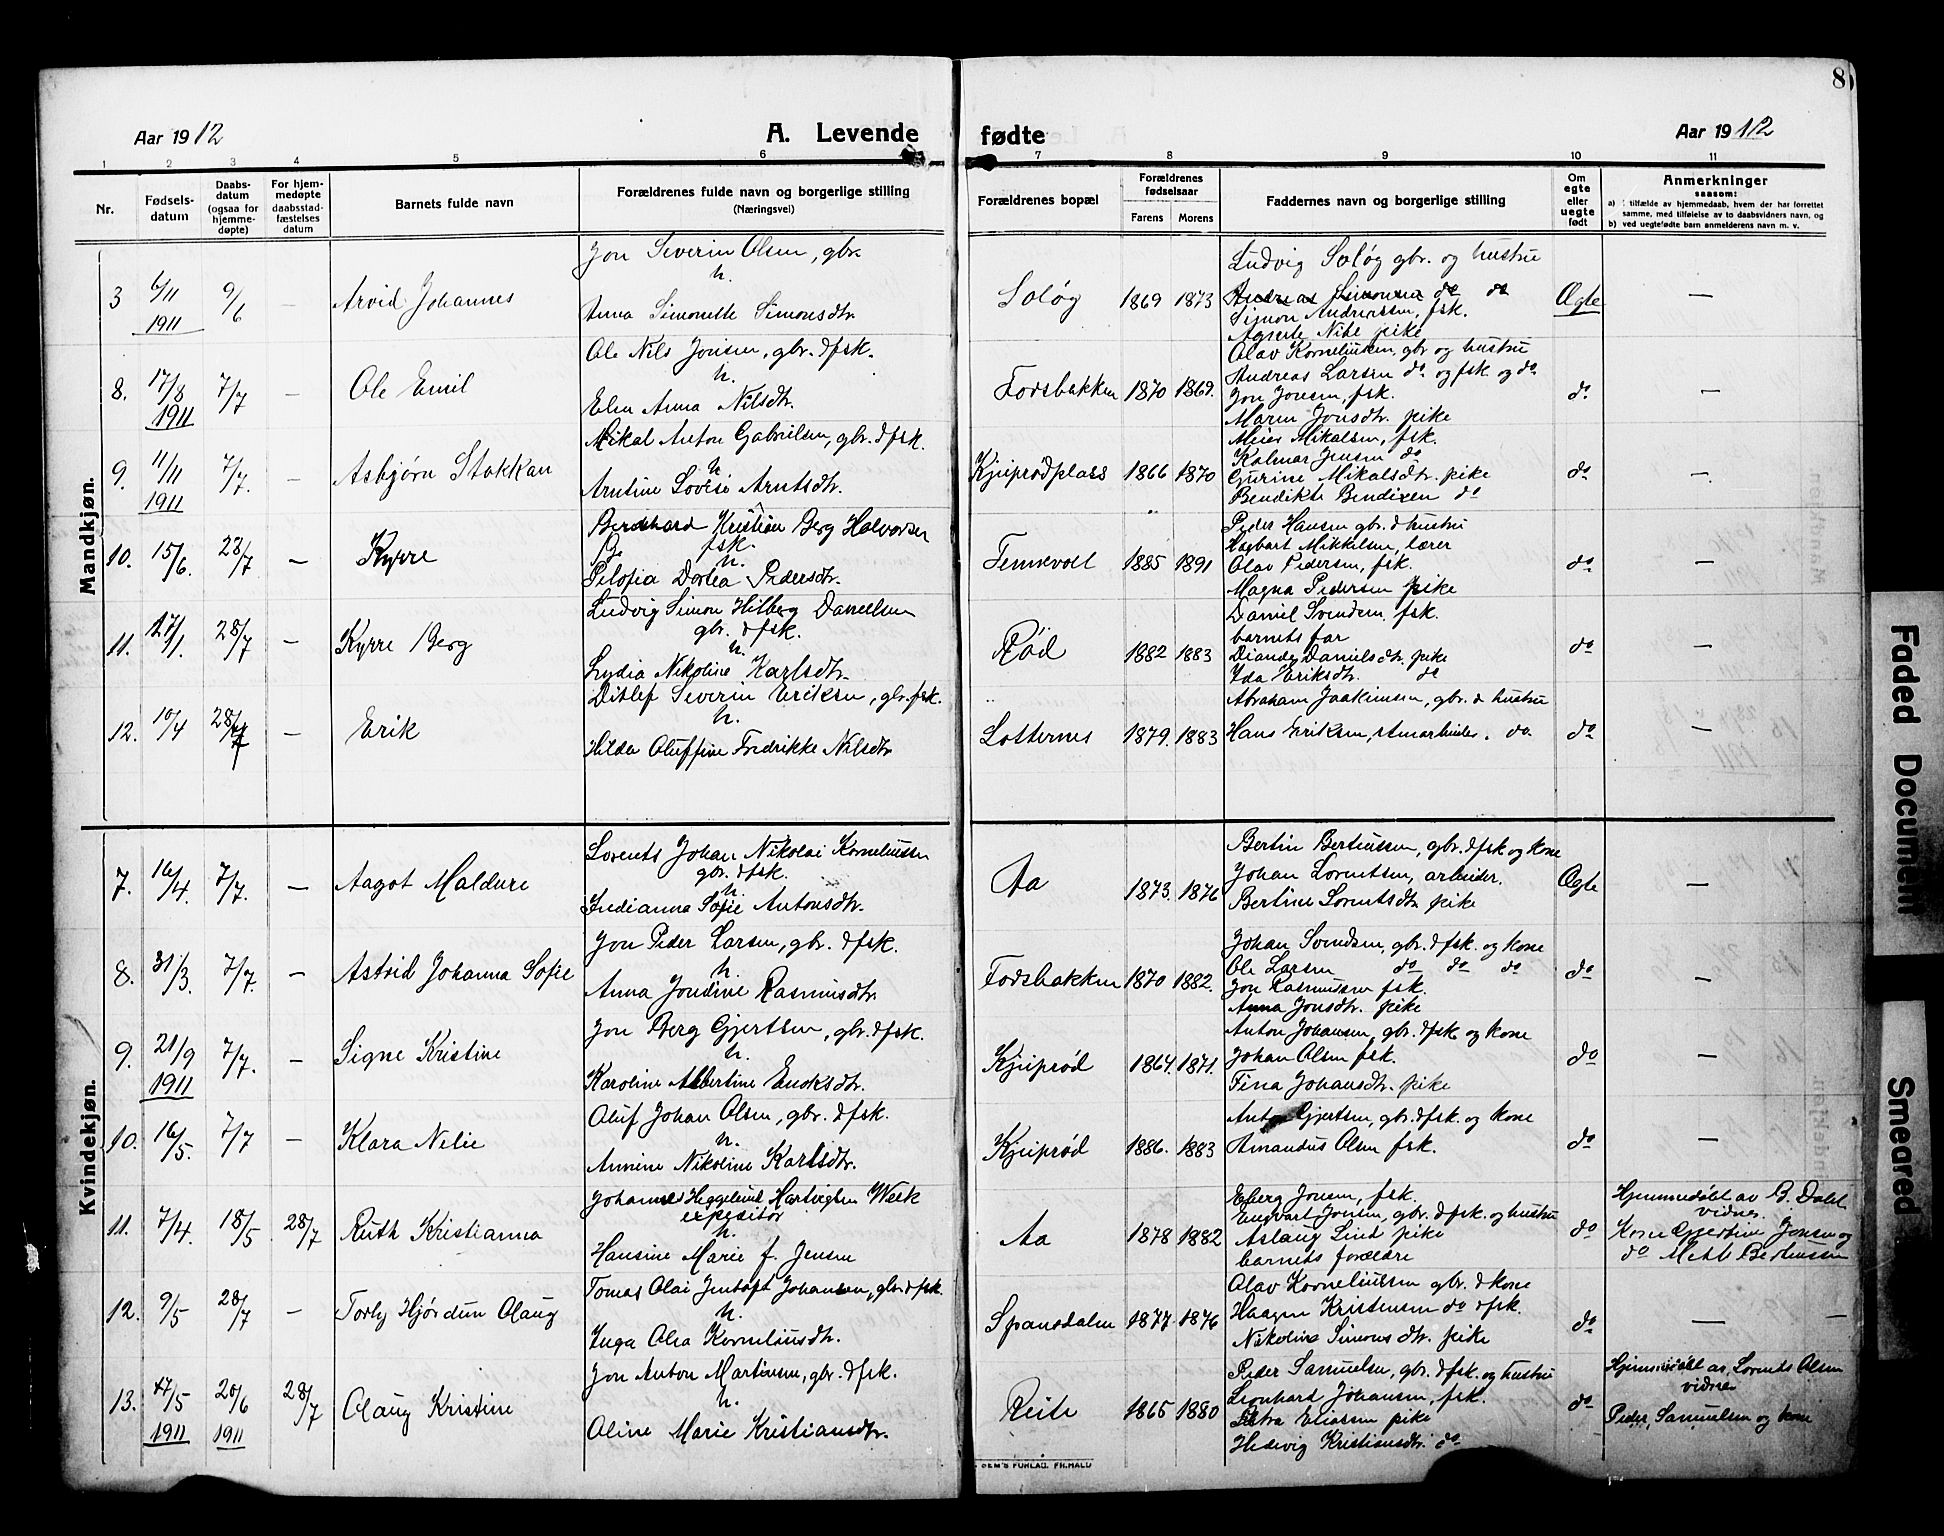 8
Aar 1912
A. Levende fødte
Aar 1912
1 2 3 4 5 6 7 8 9 10 11
Nr.
Fødsels-
datum
Daabs-
datum
(ogsaa for
hjemme-
døpte)
For hjem-
medøpte
daabsstad-
fæstelses
datum
Barnets fulde navn
Forældrenes fulde navn og borgerlige stilling
(Næringsvei)
Forældrenes bopæl
Forældrenes
fødselsaar
Farens Morens
Faddernes navn og borgerlige stilling
Om
egte
eller
uegte
født
Anmerkninger
saasom:
a) i tilfælde av hjemmedaab, hvem der har forrettet
samme, med tilføielse av to daabsvidners navn, og
b) ved uegtefødte barn anmelderens navn m. v.
Mandkjøn.
3
6/11
1911
9/6
—
Arvid Johannes
Jon Severin Olsen, gbr.
h.
Anna Simonette Simonsdtr.
Soløg
1869 1873
Ludvig Soløg gbr. og hustru
Andreas Simonsen do do
Simon Andreassen, fsk.
Agnete Nibe pike
Ægte
—
8.
17/8
1911
7/7
—
Ole Emil
Ole Nils Jonsen, gbr. & fsk.
h.
Elen Anna Nilsdtr.
Fodsbakken
1870 1869.
Olav Korneliussen, gbr og hustru
Andreas Larsen do og fsk og do
Jon Jonsen, fsk.
Maren Jonsdtr. pike
do
—
9.
11/11
1911
7/7.
—
Asbjørn Stokkan
Mikal Anton Gabrielsen, gbr. & fsk.
h
Arntine Lovise Arntsdtr.
Kjuprødplass
1866 1870
Meier Mikalsen, fsk.
Kalmar Jensen do
Gurine Mikalsdtr. pike
Bendikte Bendixen do
do
—
10.
15/6.
28/7
—
Kyrre
Bernhard Kristian Berg Halvorsen
fsk.
h.
Pelosia Dortea Pedersdtr.
Tennevoll
1885 1891
Peder Hansen gbr. & hustru
Hagbart Mikkelsen, lærer
Olav Pedersen, fsk.
Magna Pedersen pike
do
—
11.
27/1.
28/7
—
Kyrre Berg
Ludvig Simon Hilberg Danielsen
gbr. & fsk.
h.
Lydia Nikoline Karlsdtr.
Rød
1882 1883
Daniel Svendsen fsk.
barnets far
Danielsdtr. pike
Ida Eriksdtr. do
do
—
12.
10/4
28/7
—
Erik
Ditlef Severin Eriksen, gbr. fsk.
h.
Hilda Oluffine Fredrikke Nilsdtr.
Lotternes
1879. 1883
Abraham Joakimsen, gbr. & hustru
Hans Eriksen, . do
do
—
Kvindekjøn.
7.
16/4.
7/7.
—
Aagot Maldure
Lorents Johan Nikolai Korneliussen
gbr. & fsk.
h.
Indianna Sofie Antonsdtr.
Aa
1873. 1876
Bertin Bertinssen, gbr. & fsk og kone
Johan Lorentsen, arbeider.
Bertine Lorentsdtr. pike
Ægte
—
8.
31/3.
7/7.
—
Astrid Johanna Sofie
Jon Peder Larsen, gbr. & fsk.
h.
Anna Jondine Rasmusdtr.
Fodsbakken
1870 1882.
Johan Svendsen, gbr. & fsk. og kone
Ole Larsen do do do
Jon Rasmussen fsk.
Anna Jonsdtr. pike
do
—
9.
21/9
1911
7/7.
—
Signe Kristine
Jon Berg Gjertsen, gbr. & fsk.
h.
Karoline Albertine Enoksdtr.
Kjuprød
1864. 1871.
Anton Johansen, gbr. & fsk og kone
Johan Olsen fsk.
Tina Johansdtr. pike
do
—
10.
16/5.
7/7
—
Klara Nelie
Oluf Johan Olsen, gbr. & fsk.
h.
Annine Nikoline Karlsdtr.
Kjuprød
1886. 1883
Anton Gjertsen, gbr. & fsk. og kone
Amandus Olsen fsk.
do
—
11.
7/4.
18/5
28/7
Ruth Kristianna
Johannes Heggelund Hartvigsen Week
expeditør
h.
Hansine Marie f. Jensen
Aa
1878 1882
Esberg Jonsen, fsk.
Engvart Jonsen, gbr. & fsk. og hustru
Aslaug Lind pike
barnets forældre
do
Hjemmedøbt av B. Dahl
vidner
Kone Gjertine Jonsen og
do Mette Bertinssen
12.
9/5
28/7
—
Torly Hjørdun Olaug
Tomas Olai Jentoft Johansen, gbr. & fsk.
h.
Inga Olea Korneliusdtr.
Spansdalen
1877 1876
Olav Korneliussen gbr. & kone
Haagen Kristensen do & fsk.
Nikoline Simonsdtr. pike
do
—
13.
17/5
1911
20/6
1911
28/7
Olaug Kristine
Jon Anton Martinsen, gbr. & fsk.
h.
Oline Marie Kristiansdtr.
Reite
1865 1880
Peder Samuelsen, gbr. & fsk. og hustru
Leonhart Johansen, fsk.
Petra Eliassen pike
Hedevig Kristiansdtr. do
do
Hjemmedøbt av Lorents Olsen
vidner
Peder Samuelsen og kone
SEM'S FORLAG, FR.HALD
Faded Document
Smeared